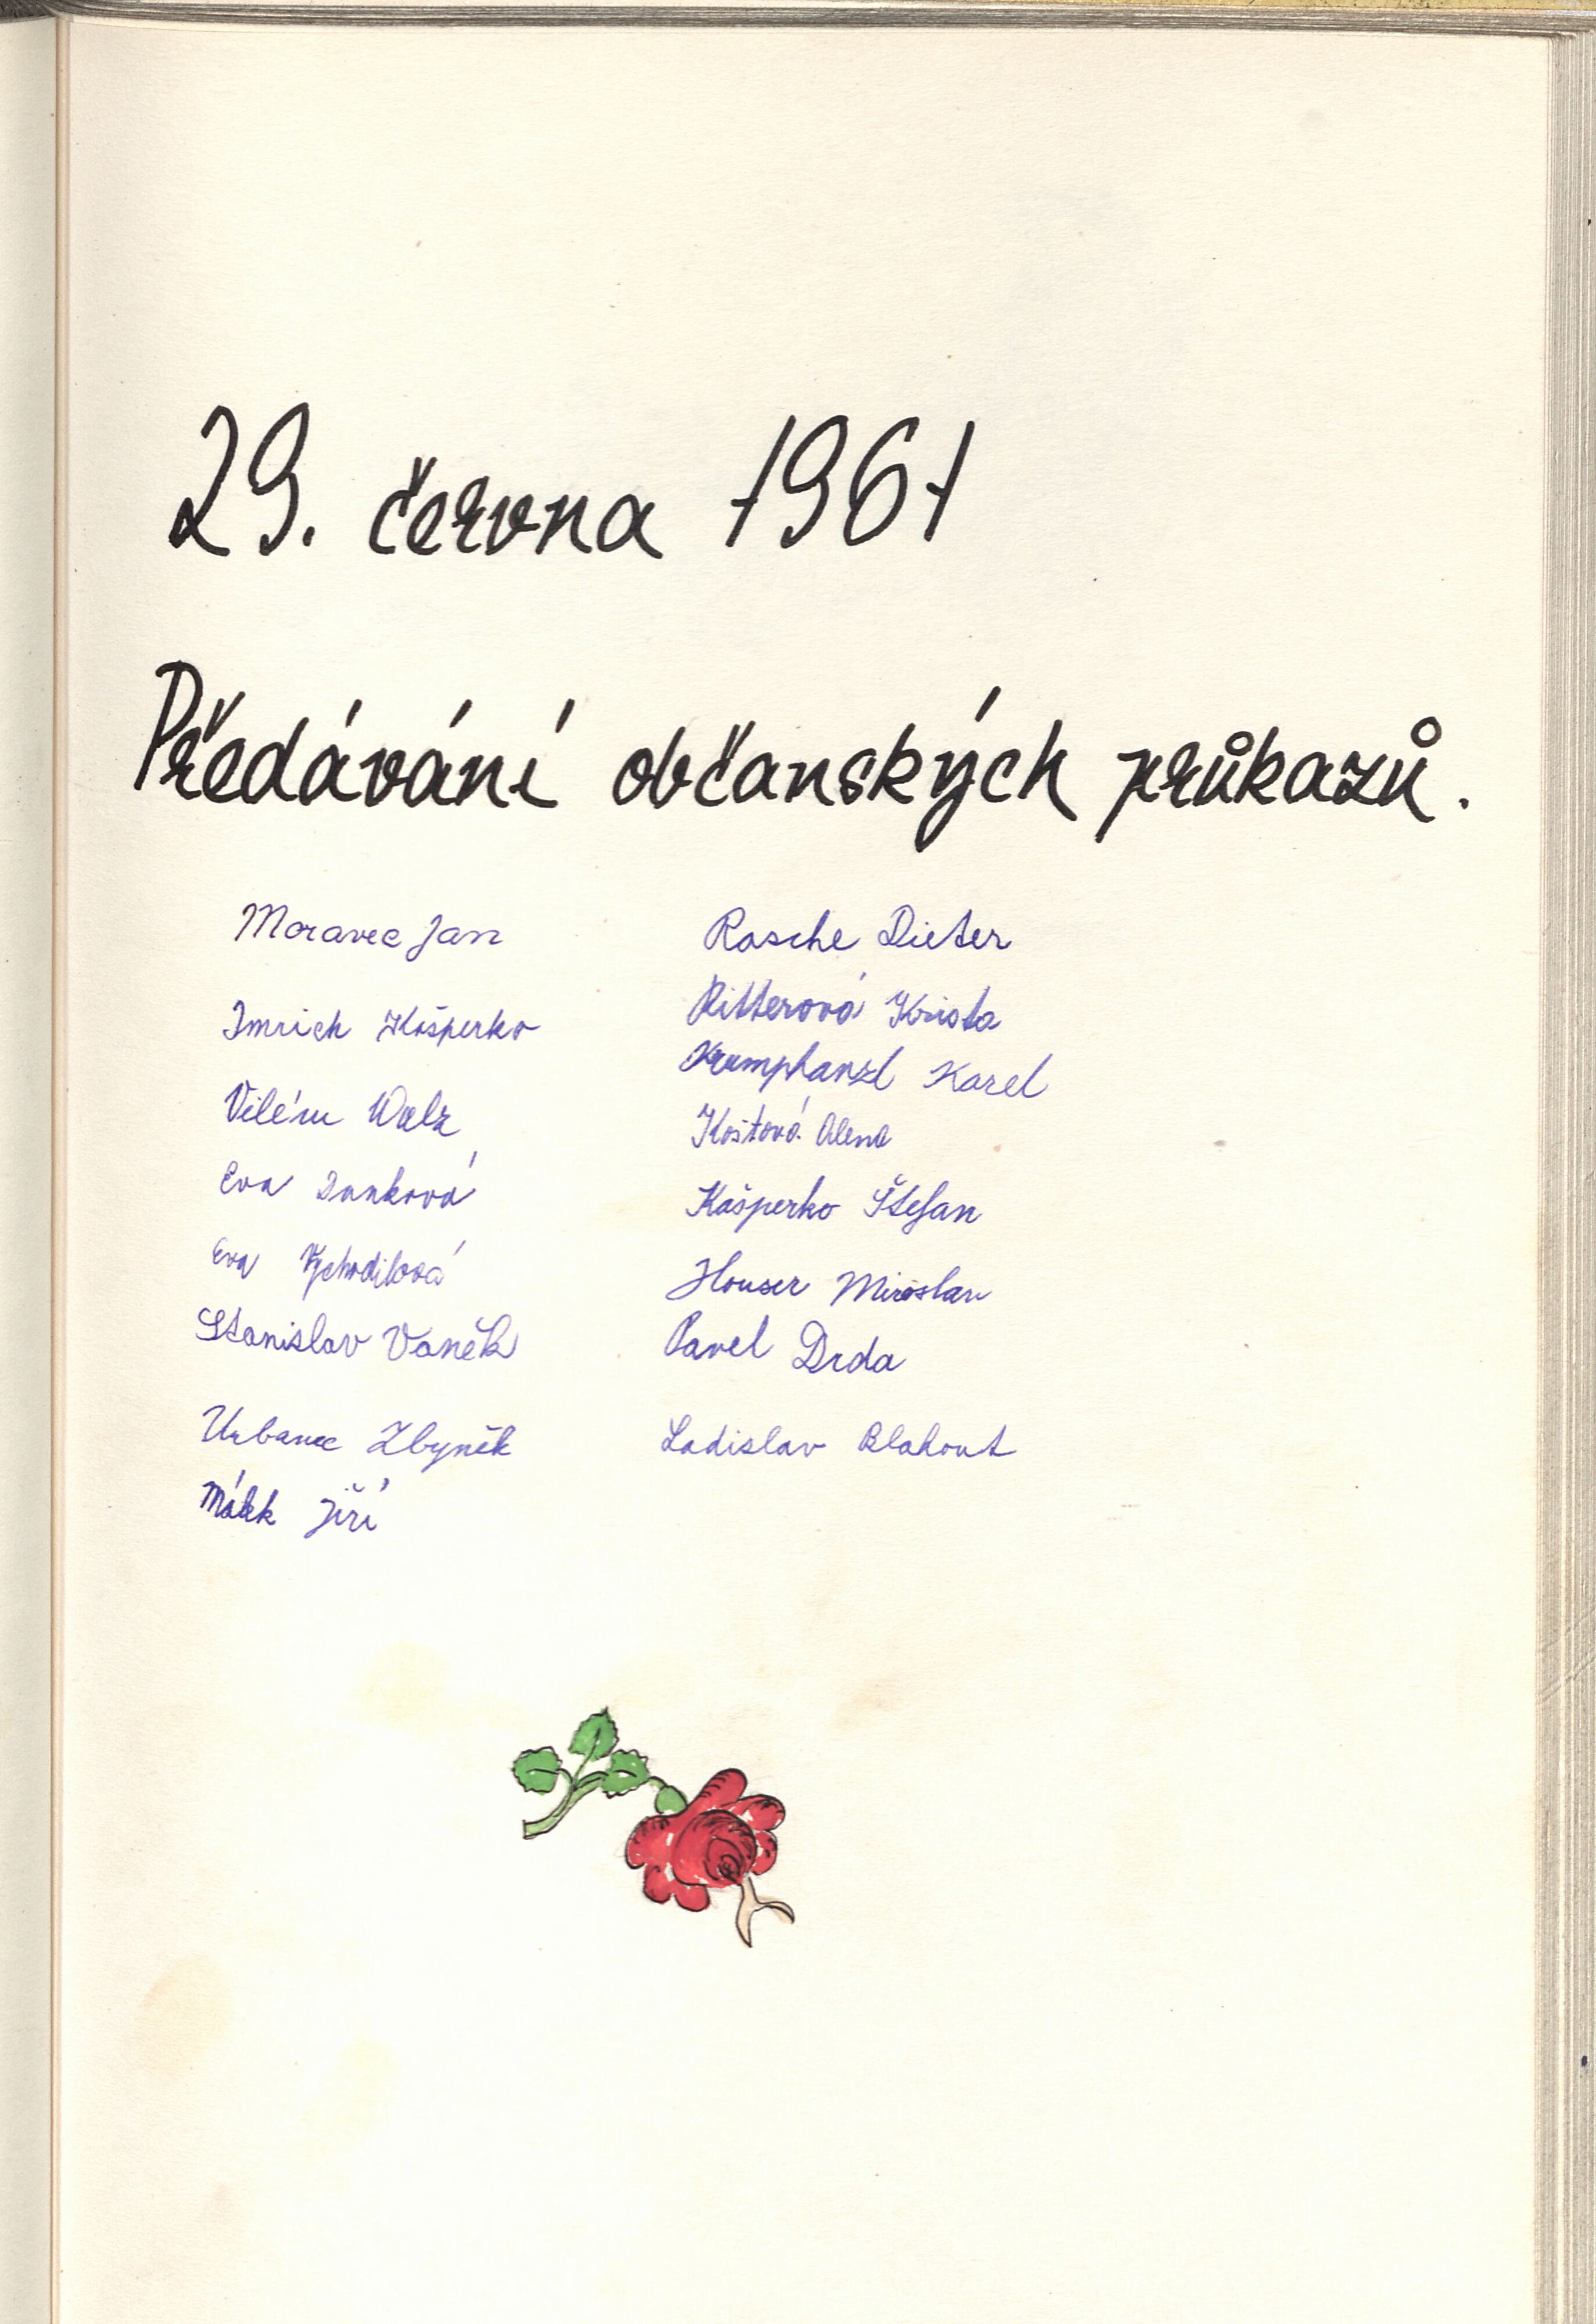 29. června 1961
Předávání občanských průkazů.
Moravec Jan
Imrich Kašperko
Vilém Walz
Eva
Eva Vychodilová
Stanislav Vaněk
Urbanec Zbyněk
Jiří
Rasche Dieter
Ritterová Krista
Krumphanzl Karel
Koštová Alena
Kašperko Štefan
Houser Miroslav
Pavel Drda
Ladislav Blahout